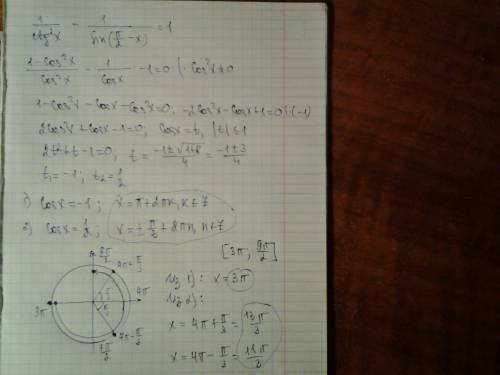 1/ctg²x - 1/sin(π/2 - x) = 1
(1-cos²x)/cos²x - 1/cosx - 1 = 0 | · cos²x ≠ 0
1-cos²x-cosx-cos²x=0; -2cos²x-cosx+1=0 |·(-1)
2cos²x+cosx-1=0; cosx=t, |t|≤1
2t²+t-1=0; t = (-1±√(1+8))/4 = (-1±3)/4
t₁=-1; t₂=1/2
1) cosx=-1; x=π+2πk, k∈Z
2) cosx=1/2; x=±π/3+2πn, n∈Z
[3π; 9π/2]
9π/2
4π+π/3
Из 1): x=3π
π/3
4π
3π
Из 2):
x=4π+π/3=13π/3
4π-π/3
x=4π-π/3=11π/3
7π/2